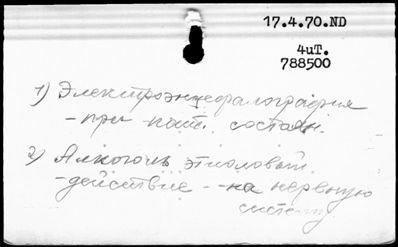 17.4.70.ND
4иТ.
788500
1) Электроэнцефалография
-при -пат. состоян.
2) Алкоголь этиловый
-действие -на нервную
систему